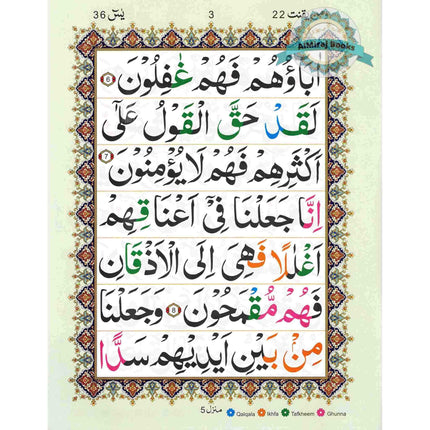 يٰسٓ 36 3 ومن يقنت 22
AlMiraj Books
اٰبَآؤُهُمْ فَهُمْ غٰفِلُوْنَ 6
لَقَدْ حَقَّ الْقَوْلُ عَلٰٓى
اَكْثَرِهِمْ فَهُمْ لَا يُؤْمِنُوْنَ 7
اِنَّا جَعَلْنَا فِيْٓ اَعْنَاقِهِمْ
اَغْلٰلًا فَهِىَ اِلَى الْاَذْقَانِ
فَهُمْ مُّقْمَحُوْنَ 8 وَجَعَلْنَا
مِنْۢ بَيْنِ اَيْدِيْهِمْ سَدًّا
منزل 5 Qalqala Ikhfa Tafkheem Ghunna